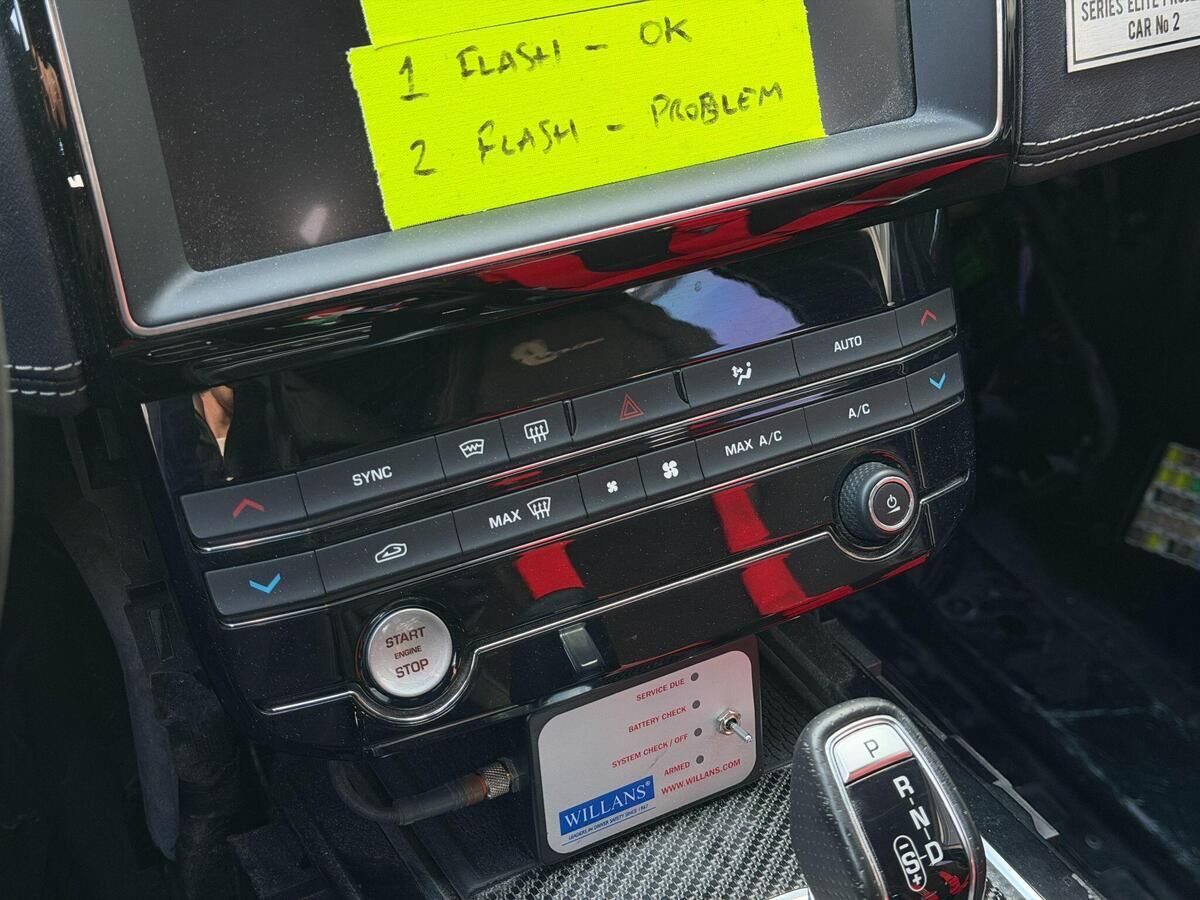 SERIES ELITE
CAR No 2
1 FLASH - OK
2 FLASH - PROBLEM
AUTO
SYNC
A/C
MAX A/C
MAX
START
ENGINE
STOP
SERVICE DUE
BATTERY CHECK
SYSTEM CHECK / OFF
ARMED
WWW.WILLANS.COM
WILLANS®
LEADERS IN DRIVER SAFETY SINCE 1967
P
R
N
D
S